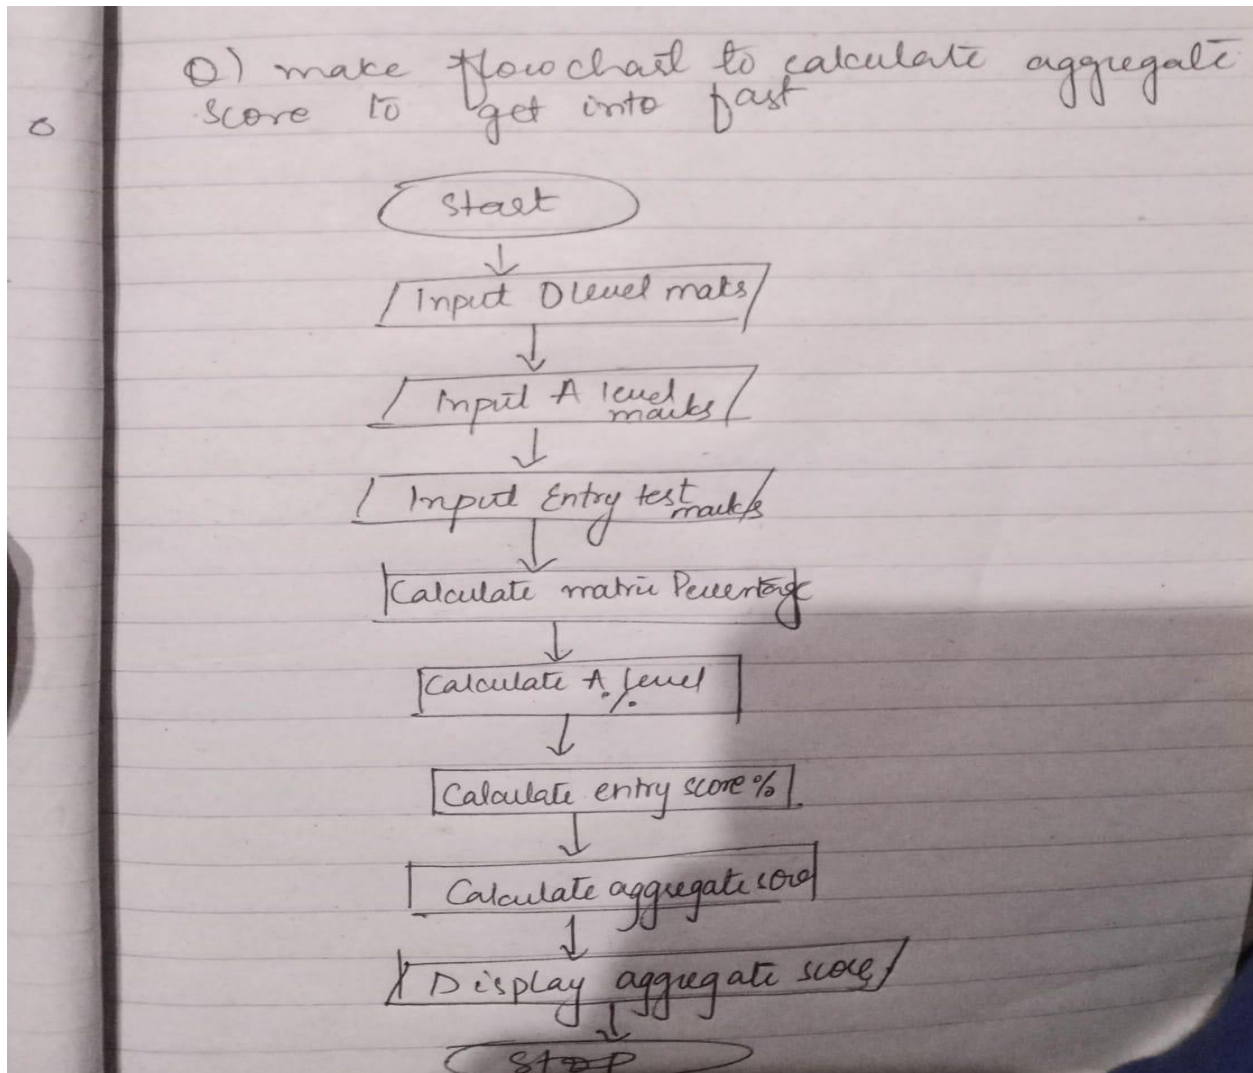 Q) make flowchart to calculate aggregate
score to get into fast
Start
Input O level maks
Input A level
marks
Input Entry test
marks
Calculate matric Percentage
Calculate A level
%
Calculate entry score %
Calculate aggregate score
Display aggregate score
STOP